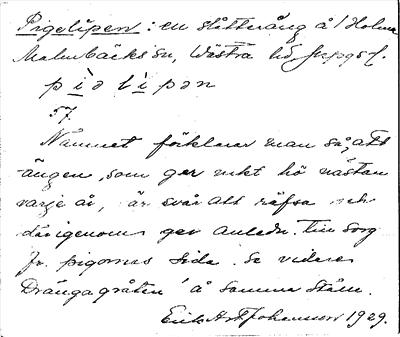 Pigelipen: en slåtteräng å/Holma
Malmbäcks sn, Västra hd Jkpgs l.
pìə lìpən
57.
Namnet förklarar man så, att
ängen, som ger rikt hö nästan
varje år, är svår att räfsa och
därigenom ger anledn. till sorg
fr. pigornas sida. Se vidare
Drängagråten å samma ställe.
Erik Art Johansson 1929.